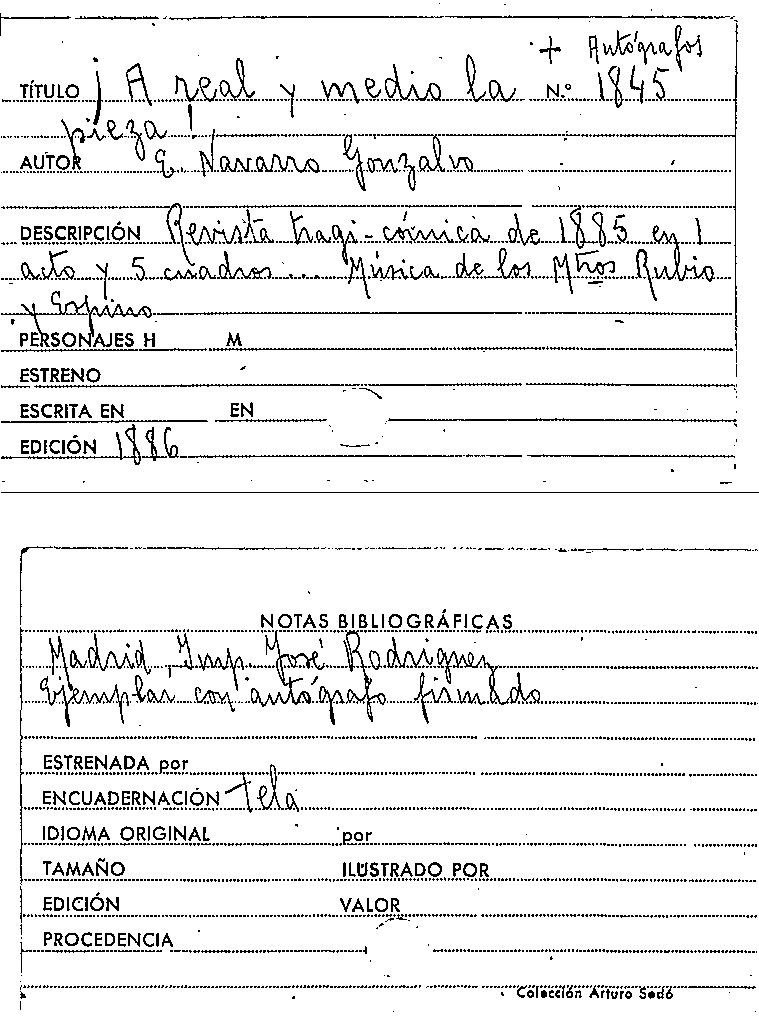 + Autógrafos
TÍTULO ¡A real y medio la N.º 1845
pieza!
AUTOR E. Navarro Gonzalvo
DESCRIPCIÓN Revista tragi-cómica de 1885 en 1
acto y 5 cuadros... Música de los Mtros Rubio
y Espino
PERSONAJES H M
ESTRENO
ESCRITA EN EN
EDICIÓN 1886
NOTAS BIBLIOGRÁFICAS
Madrid, Imp. José Rodriguez
Ejemplar con autógrafo firmado
ESTRENADA por
ENCUADERNACIÓN tela
IDIOMA ORIGINAL por
TAMAÑO ILUSTRADO POR
EDICIÓN VALOR
PROCEDENCIA
Colección Arturo Sedó